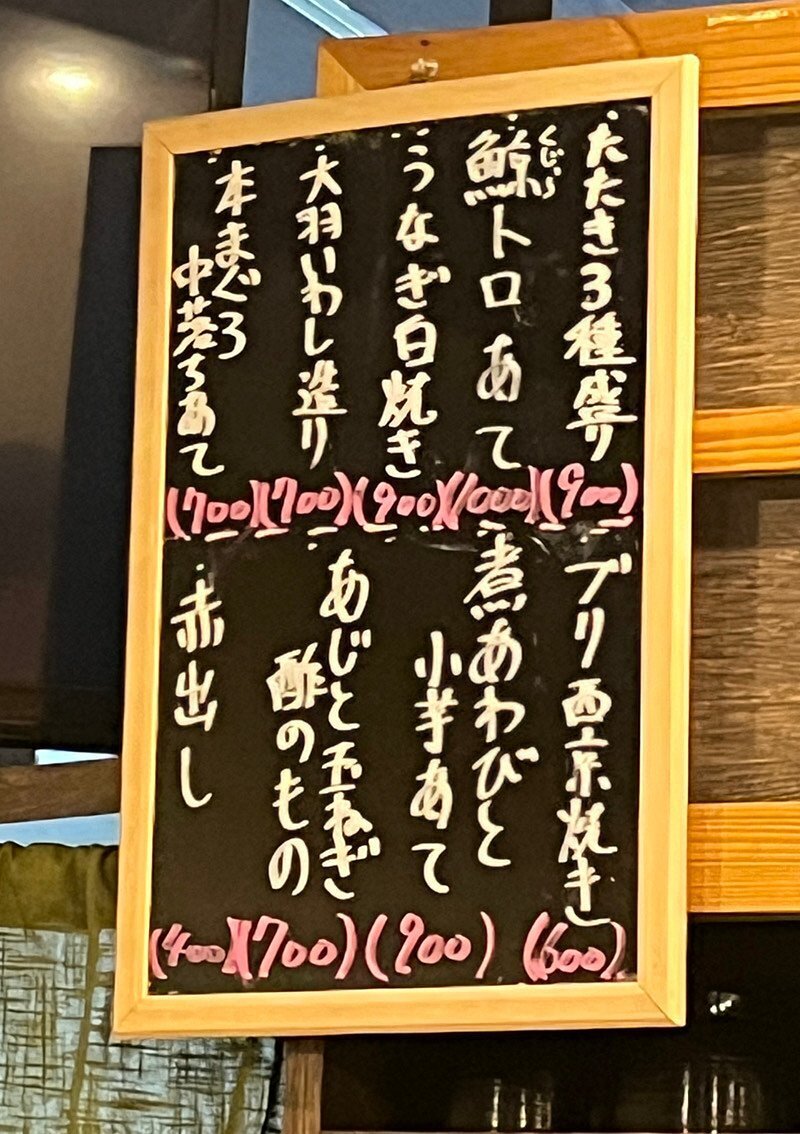 たたき3種盛り
(900)
鯨トロあて
くじら
(1000)
うなぎ白焼き
(900)
大羽いわし造り
(700)
本まぐろ
中落ちあて
(700)
ブリ西京焼き
(600)
煮あわびと
小芋あて
(900)
あじと玉ねぎ
酢のもの
(700)
赤出し
(400)